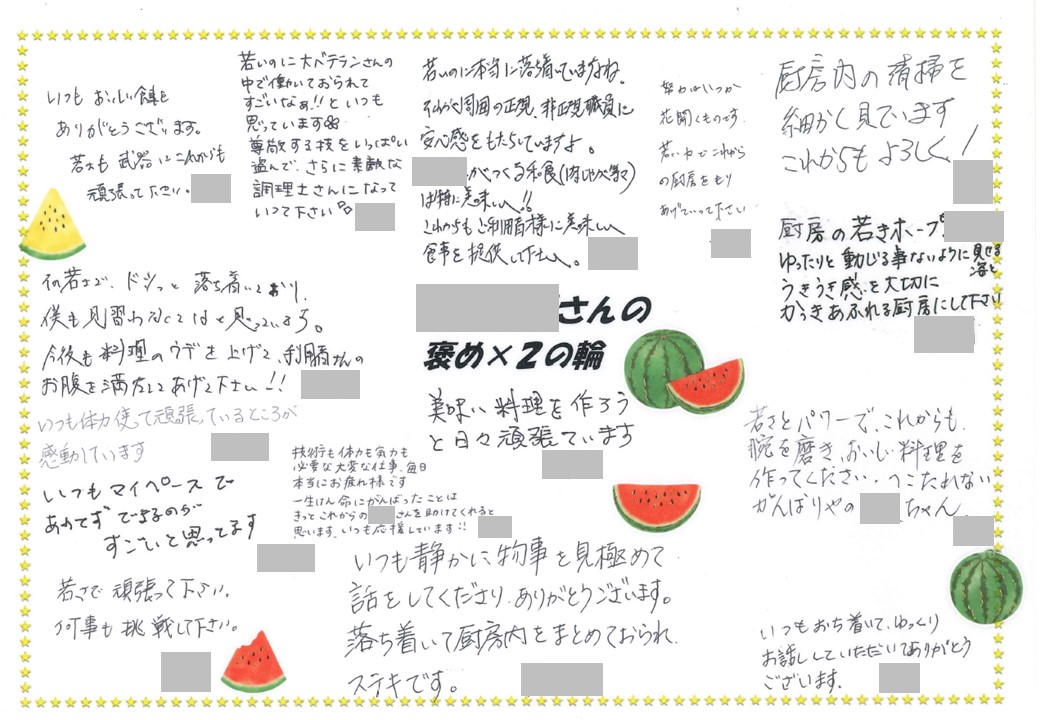 いつもおいしい食事を
ありがとうございます。
若さも武器にこれからも
頑張って下さい。
若いのに大ベテランさんの
中で働いておられて
すごいなぁ!!といつも
思っています
尊敬する技をいっぱい
盗んで、さらに素敵な
調理士さんになって
いって下さい
若いのに本当に落ち着いていますよね。
周囲の正規、非正規職員に
安心感をもたらしていますよ。
がつくる和食(肉じゃが等々)
は特に美味しい!!
これからもご利用者様に美味しい
食事を提供して下さい。
努力はいつか
花開くものです。
若い力でこれから
の厨房をもり
あげていって下さい
厨房内の清掃を
細かく見ています
これからもよろしく!
厨房の若きホープ
ゆったりと動じる事ないように見せる
姿と
うきうき感を大切に
かっきあふれる厨房にして下さい
その若さで、ドシッと落ち着いており、
僕も見習わなくてはと思っています。
今後も料理のウデを上げて、利用者さんの
お腹を満たしてあげて下さい!!
さんの
褒め×2の輪
美味しい料理を作ろう
と日々頑張っています
いつも体力使って頑張っているところが
感動しています
いつもマイペースで
あわてずできるのが
すごいと思ってます
技術も体力も気力も
必要な大変な仕事、毎日
本当にお疲れ様です
一生けん命にがんばったことは
きっとこれからの さんを助けてくれると
思います。いつも応援しています!!
若さとパワーで、これからも
腕を磨き、おいしい料理を
作ってください。へこたれない
がんばりやの ちゃん
若さで頑張って下さい。
何事も挑戦して下さい。
いつも静かに物事を見極めて
話をしてくださり、ありがとうございます。
落ち着いて厨房内をまとめておられ、
ステキです。
いつもおち着いて、ゆっくり
お話ししていただいてありがとう
ございます。